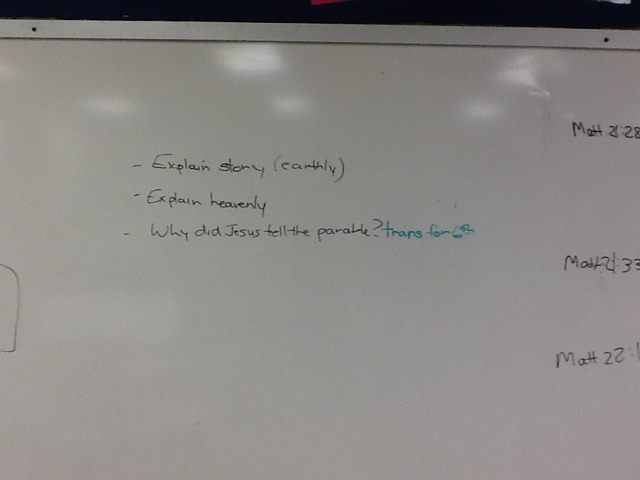 Matt 21:28
- Explain story (earthly)
- Explain heavenly
- Why did Jesus tell the parable? traps for 6th
Matt 21:33
Matt 22:1